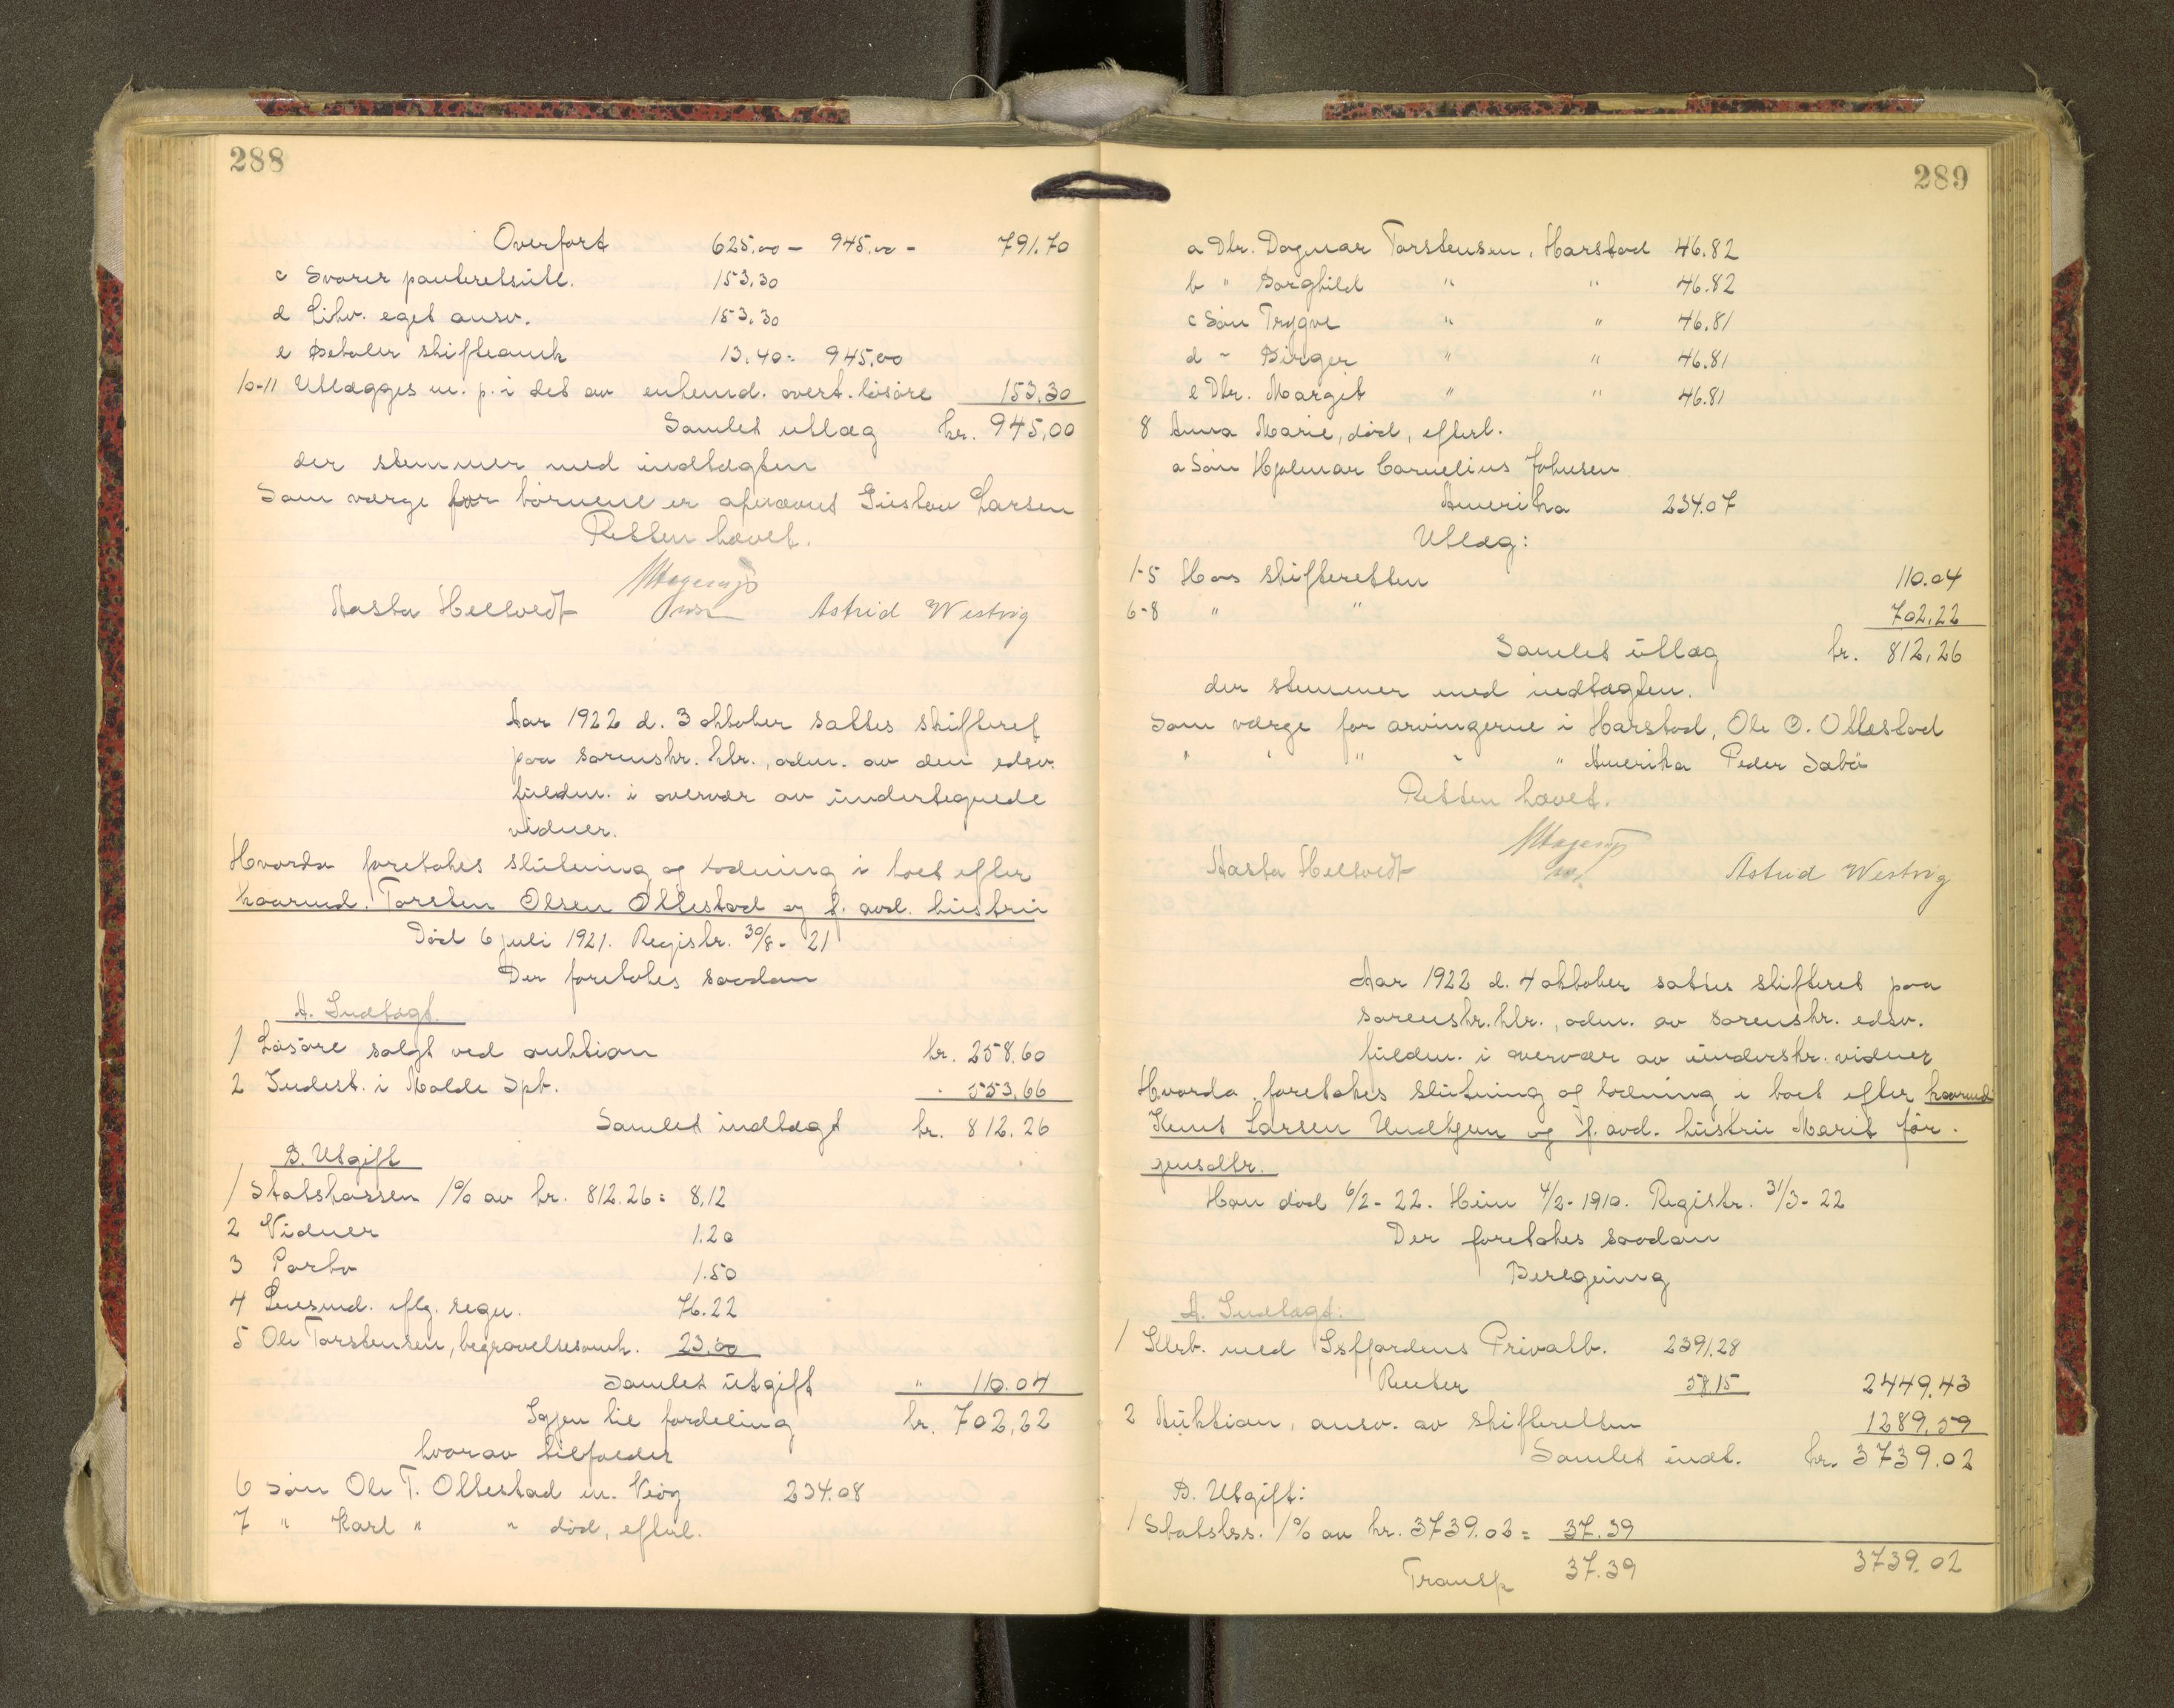 288
Overført 625.00 - 945.00 - 791.70
c Svarer panteretsutl. 153.30
d Likv. eget ansv. 153.30
e Betaler skifteomk 13.40 = 945.00
10-11 Utlægges m. p. i det av enkemd. overt. løsøre 153.30
Samlet utlæg kr. 945,00
der stemmer med indtægten
Som værge for børnene er opnævnt Gustav Larsen
Retten hævet.
Aasta Helseth Astrid Westvig
Aar 1922 d. 3 oktober sattes skifteret
paa sorenskr. ktr., adm. av den edsv.
fuldm. i overvær av undertegnede
vidner.
Hvorda foretokes slutning og lodning i boet efter
kaarmd. Torsten Olsen Ottestad og f. avd. hustru
Død 6 juli 1921. Registr. 30/8 - 21
Der foretokes saadan
A. Indtægt
1 Løsøre solgt ved auktion kr. 258.60
2 Indest. i Molde Spb. - 553,66
Samlet indtægt kr. 812.26
B. Utgift
1 Statskassen 1% av kr. 812.26 = 8,12
2 Vidner 1.20
3 Porto 1.50
4 Lensmd. iflg. regn. 76.22
5 Ole Torstensen, begravelsesomk. 23.00
Samlet utgift " 110.04
Igjen til fordeling kr. 702,22
hvorav tilfalder
6 Søn Ole T. Ottestad m. Veøy 234.08
7 " Karl " " død, efterl.
289
a Dtr. Dagmar Torstensen, Harstad 46.82
b " Borghild " " 46.82
c Søn Trygve " " 46.81
d - Birger " " 46.81
e Dtr. Margit " " 46.81
8 Anna Marie, død, efterl.
a Søn Hjalmar Cornelius Johnsen
Amerika 234.07
Utlæg:
1-5 Hos skifteretten 110.04
6-8 " " 702,22
Samlet utlæg kr. 812,26
der stemmer med indtægten.
Som værge for arvingerne i Harstad, Ole O. Ottestad
" " " " " Amerika Peder Sabø
Retten hævet.
Aasta Helseth Astrid Westvig
Aar 1922 d. 4 oktober sattes skifteret paa
sorenskr. ktr., adm. av sorenskr. edsv.
fuldm. i overvær av underskr. vidner
Hvorda foretokes slutning og lodning i boet efter kaarmd
Knut Larsen Undhjem og f. avd. hustru Marit Jør-
gensdtr.
Han død 6/2 - 22. Hun 4/2 - 1910. Registr. 31/3 - 22
Der foretokes saadan
Beregning
A. Indtægt:
1 Klrb. med Isfjordens Privatb. 2391.28
Renter 58.15 2449.43
2 Auktion, ansv. av skifteretten 1289,59
Samlet indt. kr. 3739.02
B. Utgift:
1 Statskss. 1% av kr. 3739.02 = 37.39
Transp 37.39 3739.02